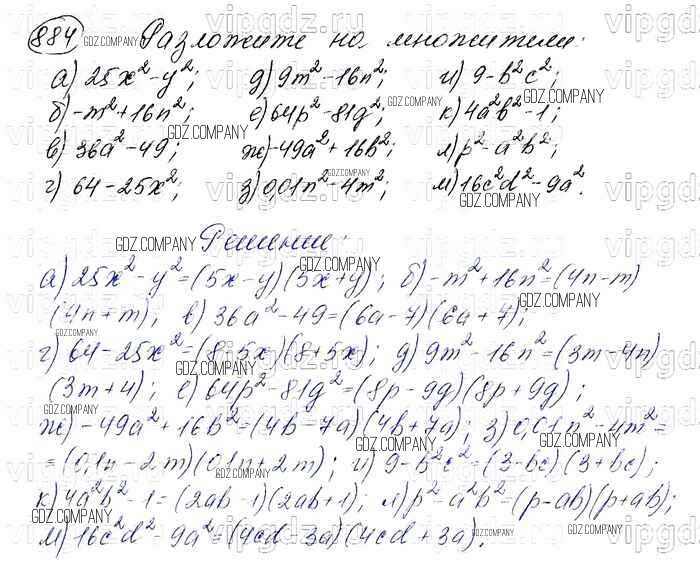 884 Разложите на множители:
а) 25x² - y²; д) 9m² - 16n²; и) 9 - b²c²;
б) -m² + 16n²; е) 64p² - 81g²; к) 4a²b² - 1;
в) 36a² - 49; ж) -49a² + 16b²; л) p² - a²b²;
г) 64 - 25x²; з) 0,01n² - 4m²; м) 16c²d² - 9a².
Решение:
а) 25x² - y² = (5x - y)(5x + y); б) -m² + 16n² = (4n - m)
(4n + m); в) 36a² - 49 = (6a - 7)(6a + 7);
г) 64 - 25x² = (8 - 5x)(8 + 5x); д) 9m² - 16n² = (3m - 4n)
(3m + 4); е) 64p² - 81g² = (8p - 9g)(8p + 9g);
ж) -49a² + 16b² = (4b - 7a)(4b + 7a); з) 0,01n² - 4m² =
= (0,1n - 2m)(0,1n + 2m); и) 9 - b²c² = (3 - bc)(3 + bc);
к) 4a²b² - 1 = (2ab - 1)(2ab + 1); л) p² - a²b² = (p - ab)(p + ab);
м) 16c²d² - 9a² = (4cd - 3a)(4cd + 3a).